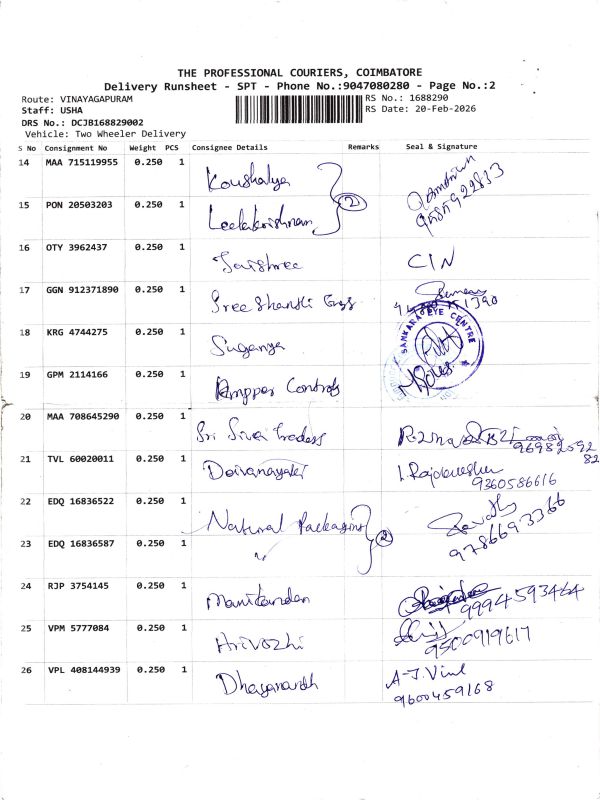 THE PROFESSIONAL COURIERS, COIMBATORE
Delivery Runsheet - SPT - Phone No.:9047080280 - Page No.:2
Route: VINAYAGAPURAM RS No.: 1688290
Staff: USHA RS Date: 20-Feb-2026
DRS No.: DCJB168829002
Vehicle: Two Wheeler Delivery
S No Consignment No Weight PCS Consignee Details Remarks Seal & Signature
14 MAA 715119955 0.250 1 Koushalya
9585922813
15 PON 20503203 0.250 1 Leelakrishnan 2
16 OTY 3962437 0.250 1 Jaishree CIN
17 GGN 912371890 0.250 1 Sree Shansli Engs
18 KRG 4744275 0.250 1 Suganya SANKARA EYE CENTRE
19 GPM 2114166 0.250 1 Ampper Controls
20 MAA 708645290 0.250 1 Sri Siva Traders
21 TVL 60020011 0.250 1 Deivanayaki L. Rajeshwaran
9360586616
22 EDQ 16836522 0.250 1 Natural Packaging 2
9786693366
23 EDQ 16836587 0.250 1 "
24 RJP 3754145 0.250 1 Manikandan 9994593464
25 VPM 5777084 0.250 1 Hrivozhi 9500919617
26 VPL 408144939 0.250 1 Dhayananth A-J. Vinl
9600459168